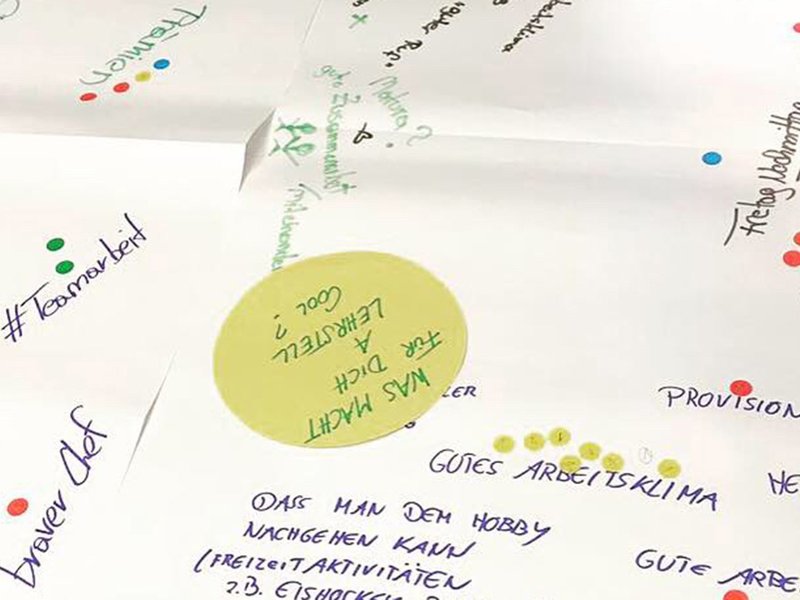 Prämien
gute Zusammenarbeit
miteinander
Freitag Nachmittag
#Teamarbeit
WAS MACHT
FÜR DICH
A
LEHRSTELL
COOL?
PROVISION
GUTES ARBEITSKLIMA
braver Chef
① DASS MAN DEM HOBBY
NACHGEHEN KANN
(FREIZEITAKTIVITÄTEN
Z.B. EISHOCKEY
GUTE ARBE
HE
LER